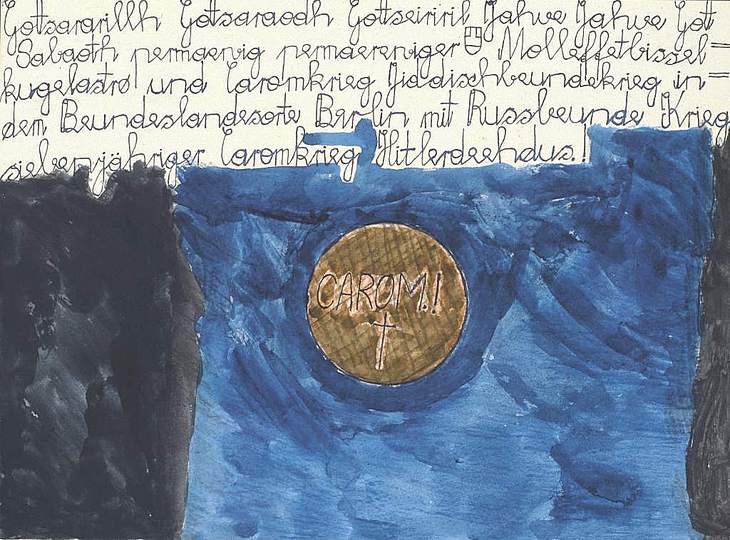 Gotsargrillh Gotsaraodh Gottseiriril Jahve Jahve Gott
Sabaoth permaenig permaereniger Molleffetbissel=
kugelastro und Caromkrieg Jiddischbeundekrieg in=
dem Beundeslandesorte Berlin mit Russbeunde Krieg
siebenjähriger Caromkrieg Hitlerdeehdus.!
CAROM.!